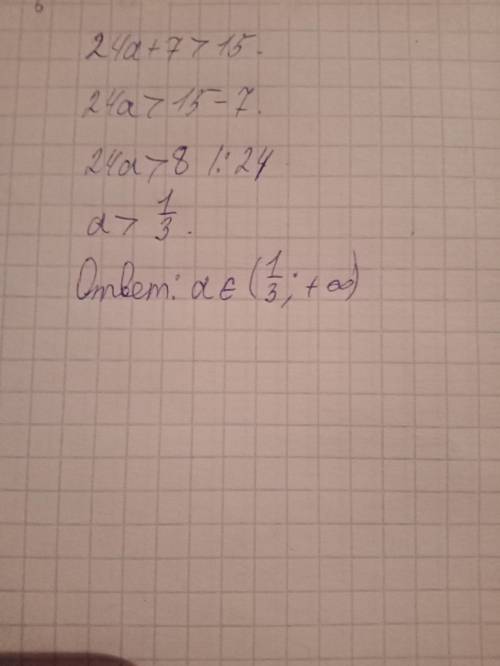 24a+7>15.
24a>15-7.
24a>8 |:24
a>1/3.
Ответ: a∈(1/3;+∞)